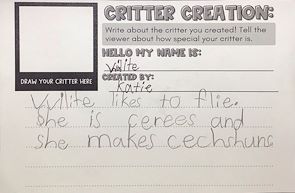 CRITTER CREATION:
Write about the critter you created! Tell the
viewer about how special your critter is.
HELLO MY NAME IS:
Vvilite
CREATED BY:
Katie
DRAW YOUR CRITTER HERE
Vvilite likes to flie.
She is cerees and
she makes cechshuns